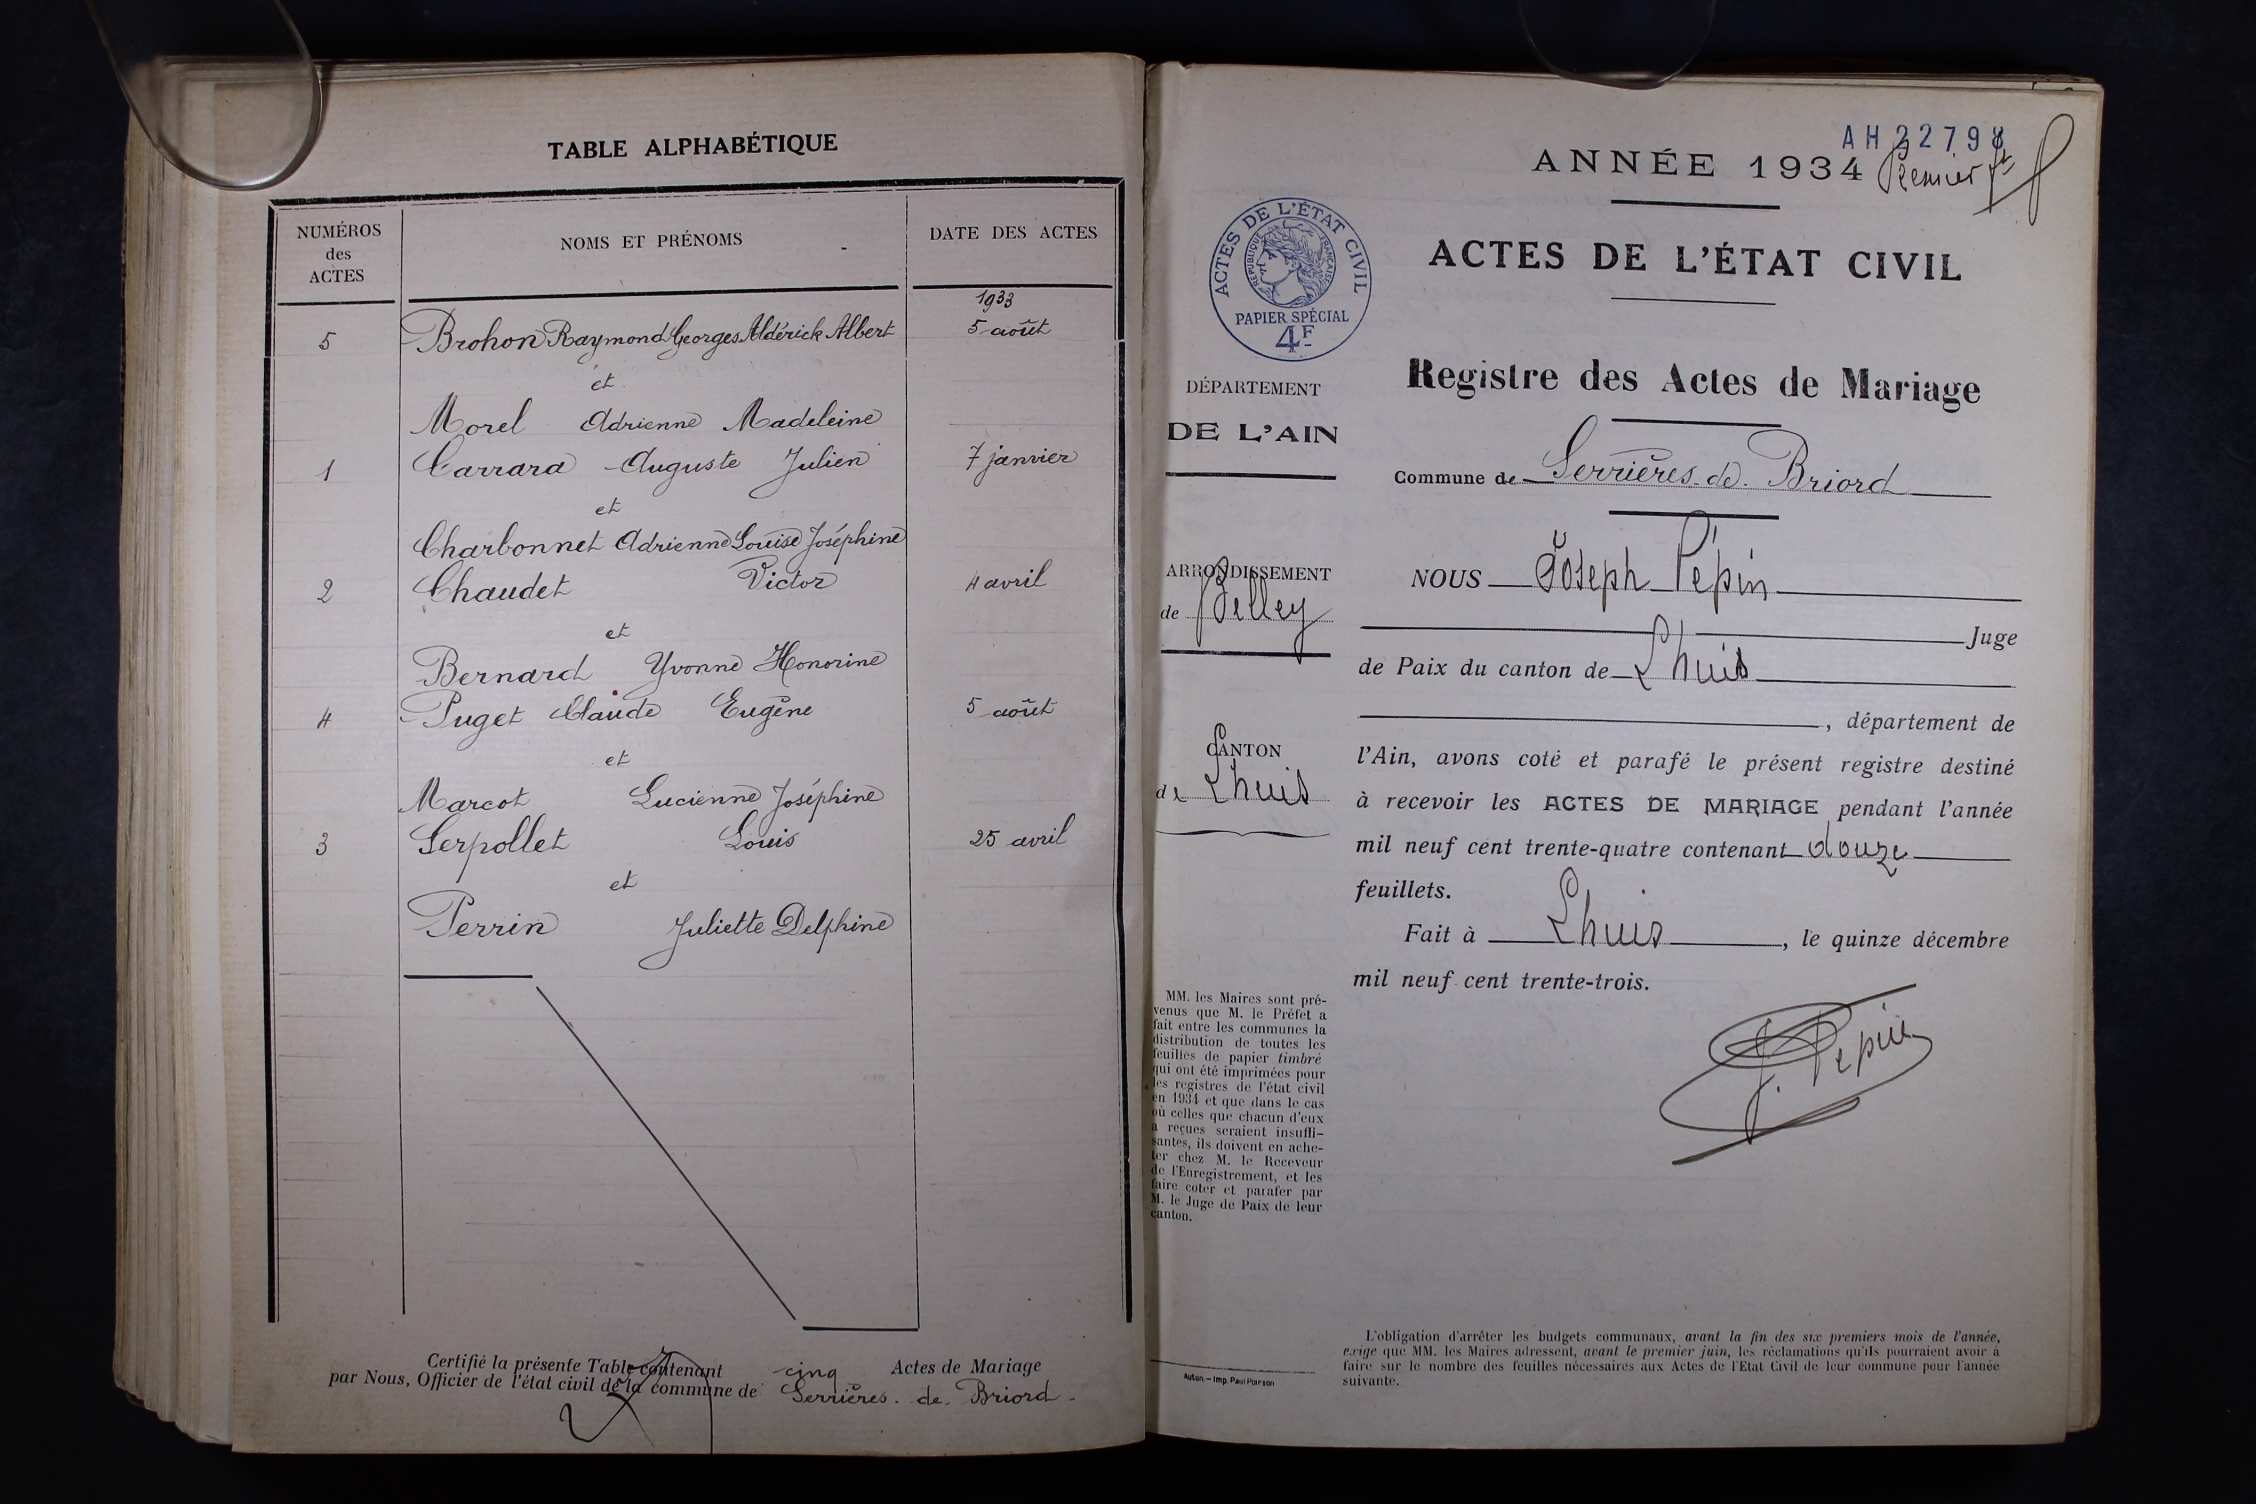 TABLE ALPHABÉTIQUE
NUMÉROS
des
ACTES
NOMS ET PRÉNOMS
DATE DES ACTES
1933
5 Brohon Raymond Georges Aldérick Albert 5 août
et
Morel Adrienne Madeleine
1 Carrara Auguste Julien 7 janvier
et
Charbonnet Adrienne Louise Joséphine
2 Chaudet Victor 4 avril
et
Bernard Yvonne Honorine
4 Puget Claude Eugène 5 août
et
Marcot Lucienne Joséphine
3 Serpollet Louis 25 avril
et
Perrin Juliette Delphine
Certifié la présente Table contenant cinq Actes de Mariage
par Nous, Officier de l'état civil de la commune de Serrières-de-Briord-
AH 2279
ANNÉE 1934 Premier ft
ACTES DE L'ÉTAT CIVIL
RÉPUBLIQUE FRANÇAISE
PAPIER SPÉCIAL
4F
ACTES DE L'ÉTAT CIVIL
Registre des Actes de Mariage
DÉPARTEMENT
DE L'AIN
Commune de Serrières-de-Briord
ARRONDISSEMENT
de Belley
CANTON
de Lhuis
NOUS Joseph Pépin
Juge
de Paix du canton de Lhuis
, département de
l'Ain, avons coté et parafé le présent registre destiné
à recevoir les ACTES DE MARIAGE pendant l'année
mil neuf cent trente-quatre contenant douze
feuillets.
Fait à Lhuis, le quinze décembre
mil neuf cent trente-trois.
J. Pepin
MM. les Maires sont pré-
venus que M. le Préfet a
fait entre les communes la
distribution de toutes les
feuilles de papier timbré
qui ont été imprimées pour
les registres de l'état civil
en 1934 et que dans le cas
où celles que chacun d'eux
a reçues seraient insuffi-
santes, ils doivent en ache-
ter chez M. le Receveur
de l'Enregistrement, et les
faire coter et parafer par
M. le Juge de Paix de leur
canton.
Autun. — Imp. Paul Poirson
L'obligation d'arrêter les budgets communaux, avant la fin des six premiers mois de l'année,
exige que MM. les Maires adressent, avant le premier juin, les réclamations qu'ils pourraient avoir à
faire sur le nombre des feuilles nécessaires aux Actes de l'Etat Civil de leur commune pour l'année
suivante.